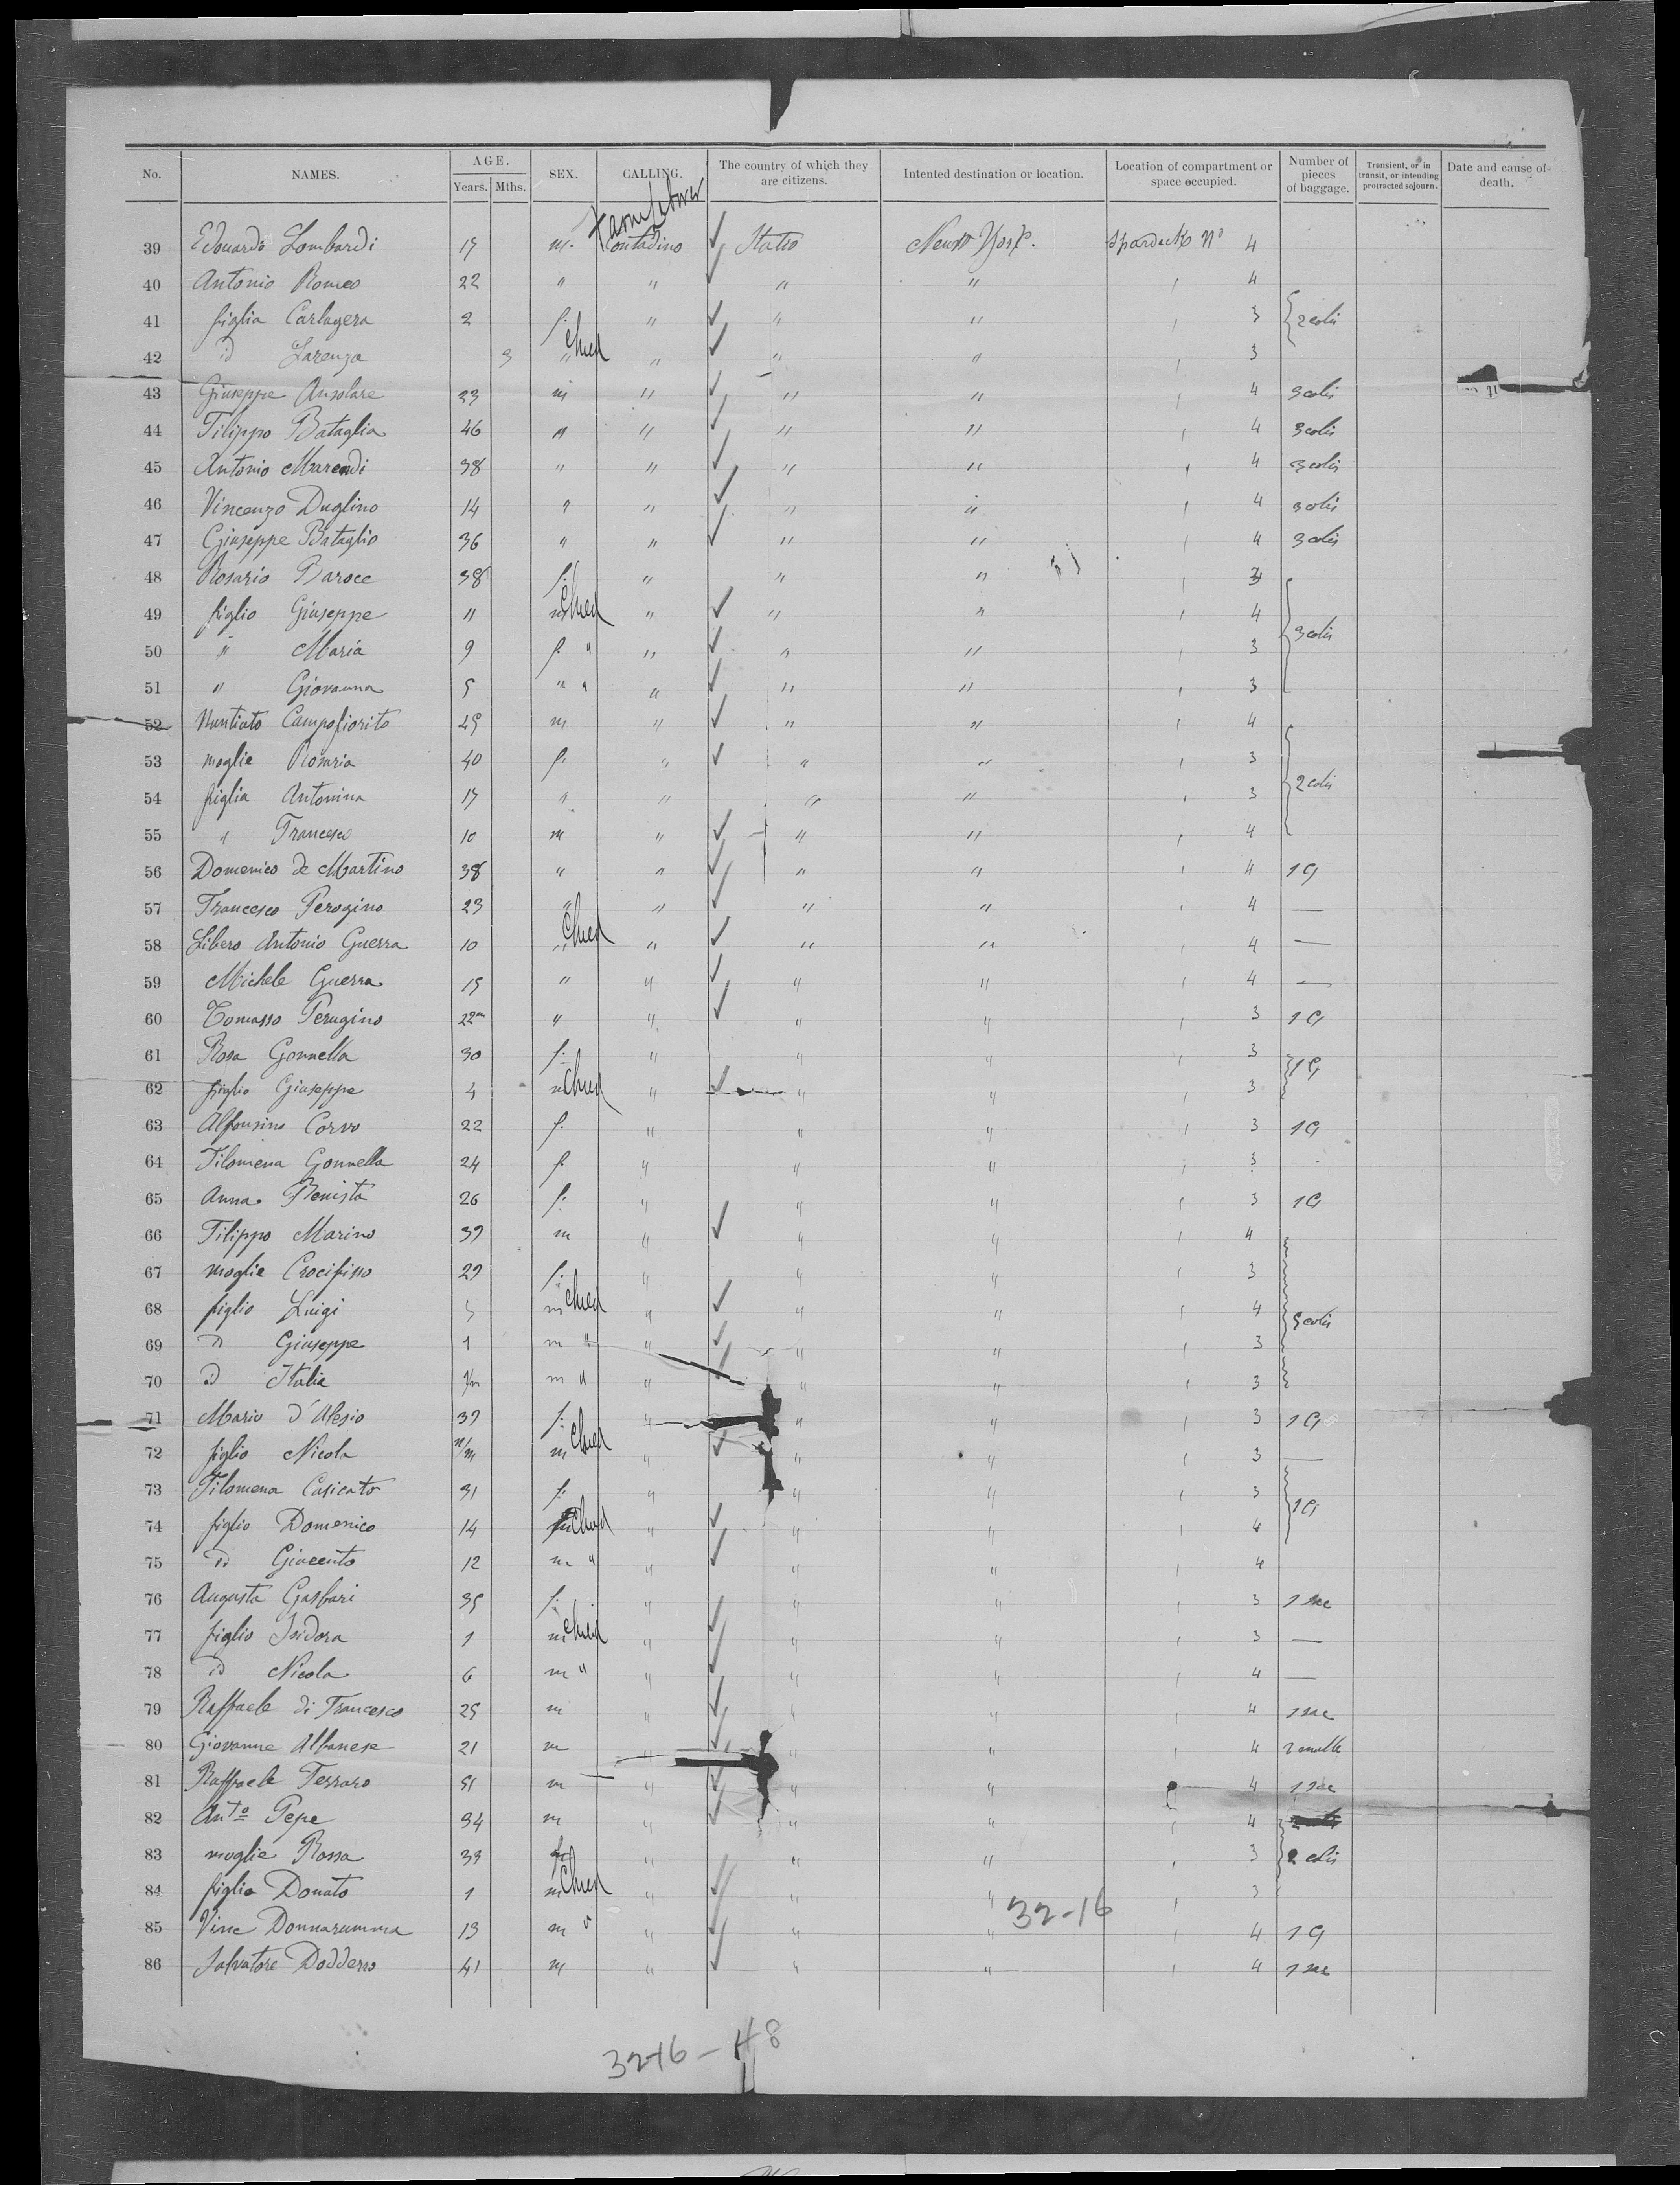 No. NAMES. AGE. Years. Mths. SEX. CALLING. The country of which they are citizens. Intented destination or location. Location of compartment or space occupied. Number of pieces of baggage. Transient, or in transit, or intending protracted sojourn. Date and cause of death.
Farm Laborer
39 Edouardo Lombardi 17 m. Contadino ✓ Italio New York. Spardeck No 4
40 Antonio Romeo 22 " " " " 4
41 figlia Carlagera 2 f. " ✓ " " 3 2 colis
42 id Larenza 3 " Chied " ✓ " " 3
43 Giuseppe Ansolare 23 m " ✓ " " 4 3 colis
44 Filippo Bataglia 46 " " ✓ " " 4 3 colis
45 Antonio Marcadi 38 " " ✓ " " 4 3 colis
46 Vincenzo Duglino 14 " " ✓ " " 4 3 colis
47 Giuseppe Bataglio 36 " " ✓ " " 4 3 colis
48 Rosario Barocc 38 f. " " " 3
49 figlio Giuseppe 11 m Chied " ✓ " " 4 3 colis
50 " Maria 9 f. " " ✓ " " 3
51 " Giovanna 5 " " " ✓ " " 3
52 Nuntiato Campofiorito 45 m " ✓ " " 4
53 moglie Rosaria 40 f. " ✓ " " 3 2 colis
54 figlia Antonina 17 " " " " 3
55 " Francesco 10 m " ✓ " " 4
56 Domenico de Martino 38 " " ✓ " " 4 1 G
57 Francesco Perogino 23 " " ✓ " " 4 —
58 Libero Antonio Guerra 10 " Chied " ✓ " " 4 —
59 Michele Guerra 15 " " ✓ " " 4 —
60 Tomasso Perugino 22m " " ✓ " " 3 1 G
61 Rosa Gonnella 30 f. " " " 3 1 G
62 figlio Giuseppe 4 m Chied " ✓ " " 3
63 Alfonsino Corvo 22 f. " " " 3 1 G
64 Filomena Gonnella 24 f. " " " 3
65 Anna Benista 26 f. " " " 3 1 G
66 Filippo Marino 37 m " ✓ " " 4
67 moglie Crocifisso 27 f. " " " 3
68 figlio Luigi 5 m Chied " ✓ " " 4 5 colis
69 id Giuseppe 1 m " " ✓ " " 3
70 id Italia m " " ✓ " " 3
71 Mario d'Alesio 37 f. " " " 3 1 G
72 figlio Nicola m Chied " ✓ " " 3 —
73 Filomena Casicato 31 f. " " " 3 1 G
74 figlio Domenico 14 Chied " ✓ " " 4
75 id Giacento 12 m " " ✓ " " 4
76 Augusta Gasbari 35 f. " " " 3 1 sac
77 figlio Isidora 1 m Chied " ✓ " " 3 —
78 id Nicola 6 m " " ✓ " " 4 —
79 Raffaele di Francesco 25 m " ✓ " " 4 1 sac
80 Giovanne Albanese 21 m " ✓ " " 4
81 Raffaele Ferraro 51 m " ✓ " " 4 1 sac
82 Anto Pepe 34 m " ✓ " " 4
83 moglie Rossa 33 f " " " 3 2 colis
84 figlio Donato 1 m Chied " ✓ " " 3
32-16
85 Vinc Donnarumma 13 m " " ✓ " " 4 1 G
86 Salvatore Dodderso 41 m " ✓ " " 4 1 sac
3216 - 48